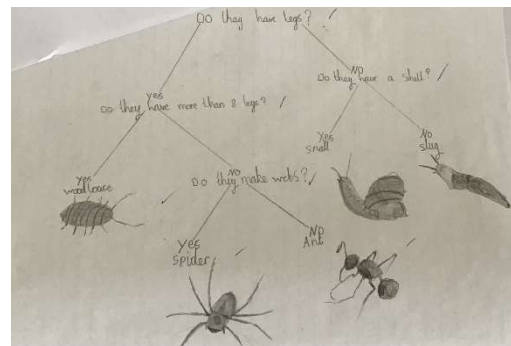 Do they have legs?
Yes
No
Do they have more than 8 legs?
Do they have a shell?
Yes
snail
No
slug
Yes
woodlouse
No
Do they make webs?
Yes
Spider
No
Ant